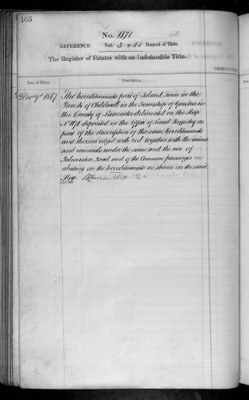 165
No. 1171
REFERENCE Vol. 3 p. 55 Record of Title.
The Register of Estates with an Indefeasible Title.
Date of Entry. Description.
1867 The hereditaments part of Island Town in the
Parish of Childwall in the Township of Garston in
the County of Lancaster delineated on the Map
No. 1171 deposited in the Office of Land Registry as
part of the description of the same hereditaments
and thereon edged with red together with the mines
and minerals under the same and the use of
Road and of the Common passages in
abutting on the hereditaments as shown in the said
Map